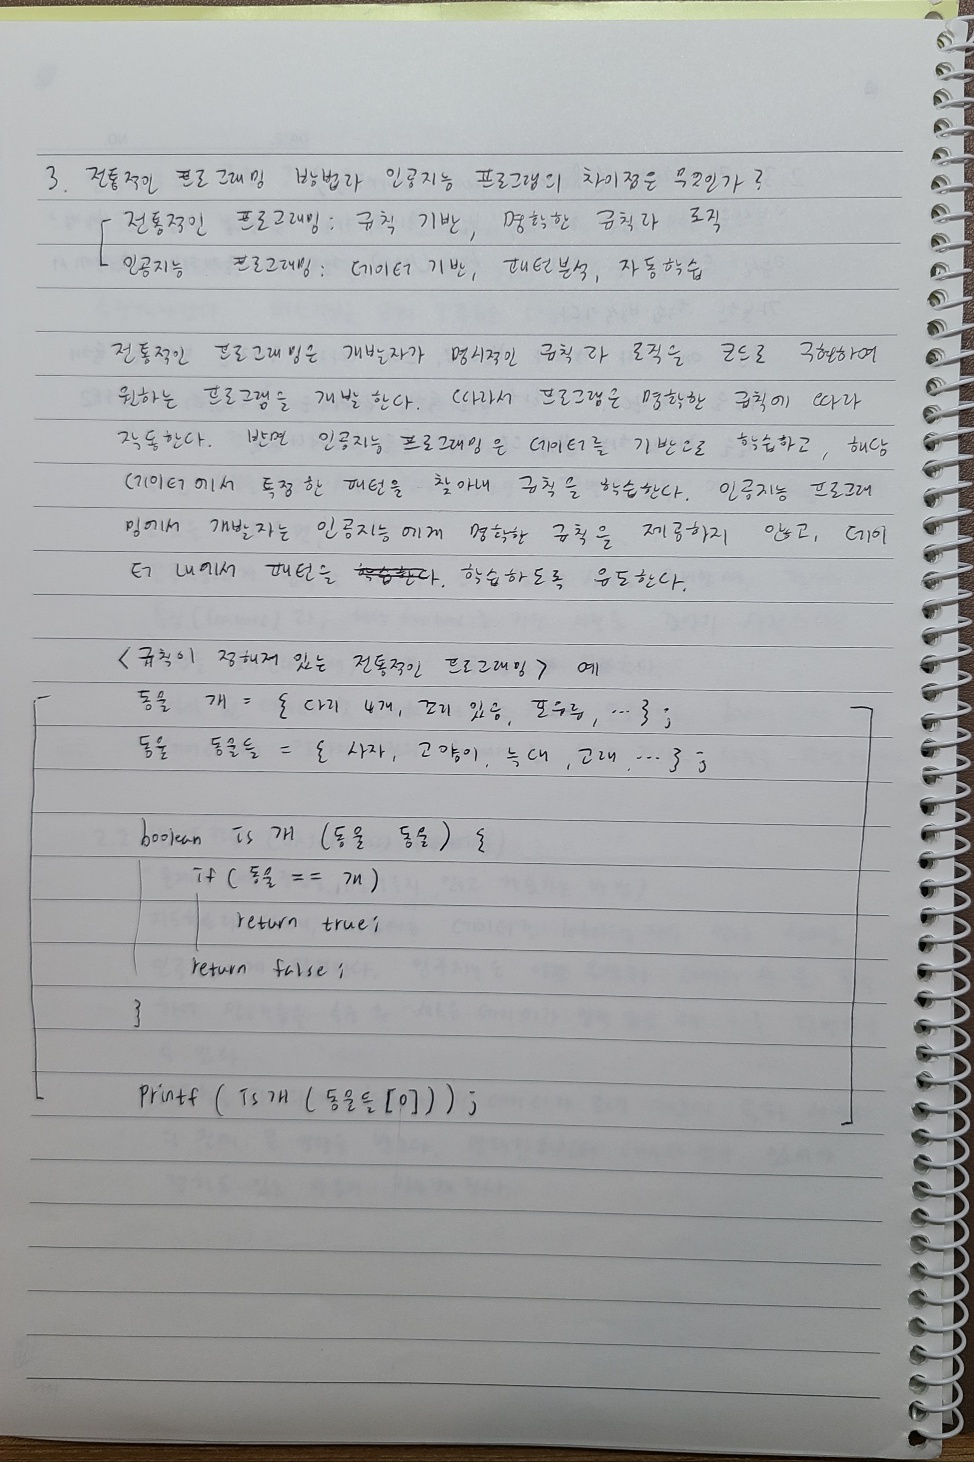 3. 전통적인 프로그래밍 방법과 인공지능 프로그램의 차이점은 무엇인가?
전통적인 프로그래밍 : 규칙 기반, 명확한 규칙과 로직
인공지능 프로그래밍 : 데이터 기반, 패턴분석, 자동학습
전통적인 프로그래밍은 개발자가 명시적인 규칙과 로직을 코드로 구현하여
원하는 프로그램을 개발한다. 따라서 프로그램은 명확한 규칙에 따라
작동한다. 반면 인공지능 프로그래밍은 데이터를 기반으로 학습하고, 해당
데이터에서 특정한 패턴을 찾아내 규칙을 학습한다. 인공지능 프로그래
밍에서 개발자는 인공지능에게 명확한 규칙을 제공하지 않고, 데이
터 내에서 패턴을 학습한다. 학습하도록 유도한다.
<규칙이 정해져 있는 전통적인 프로그래밍> 예
동물 개 = { 다리 4개, 꼬리 있음, 포유류, ... } ;
동물 동물들 = { 사자, 고양이, 늑대, 고래, ... } ;
boolean is 개 (동물 동물) {
if ( 동물 == 개)
return true;
return false;
}
Printf ( is 개 ( 동물들 [0])) ;